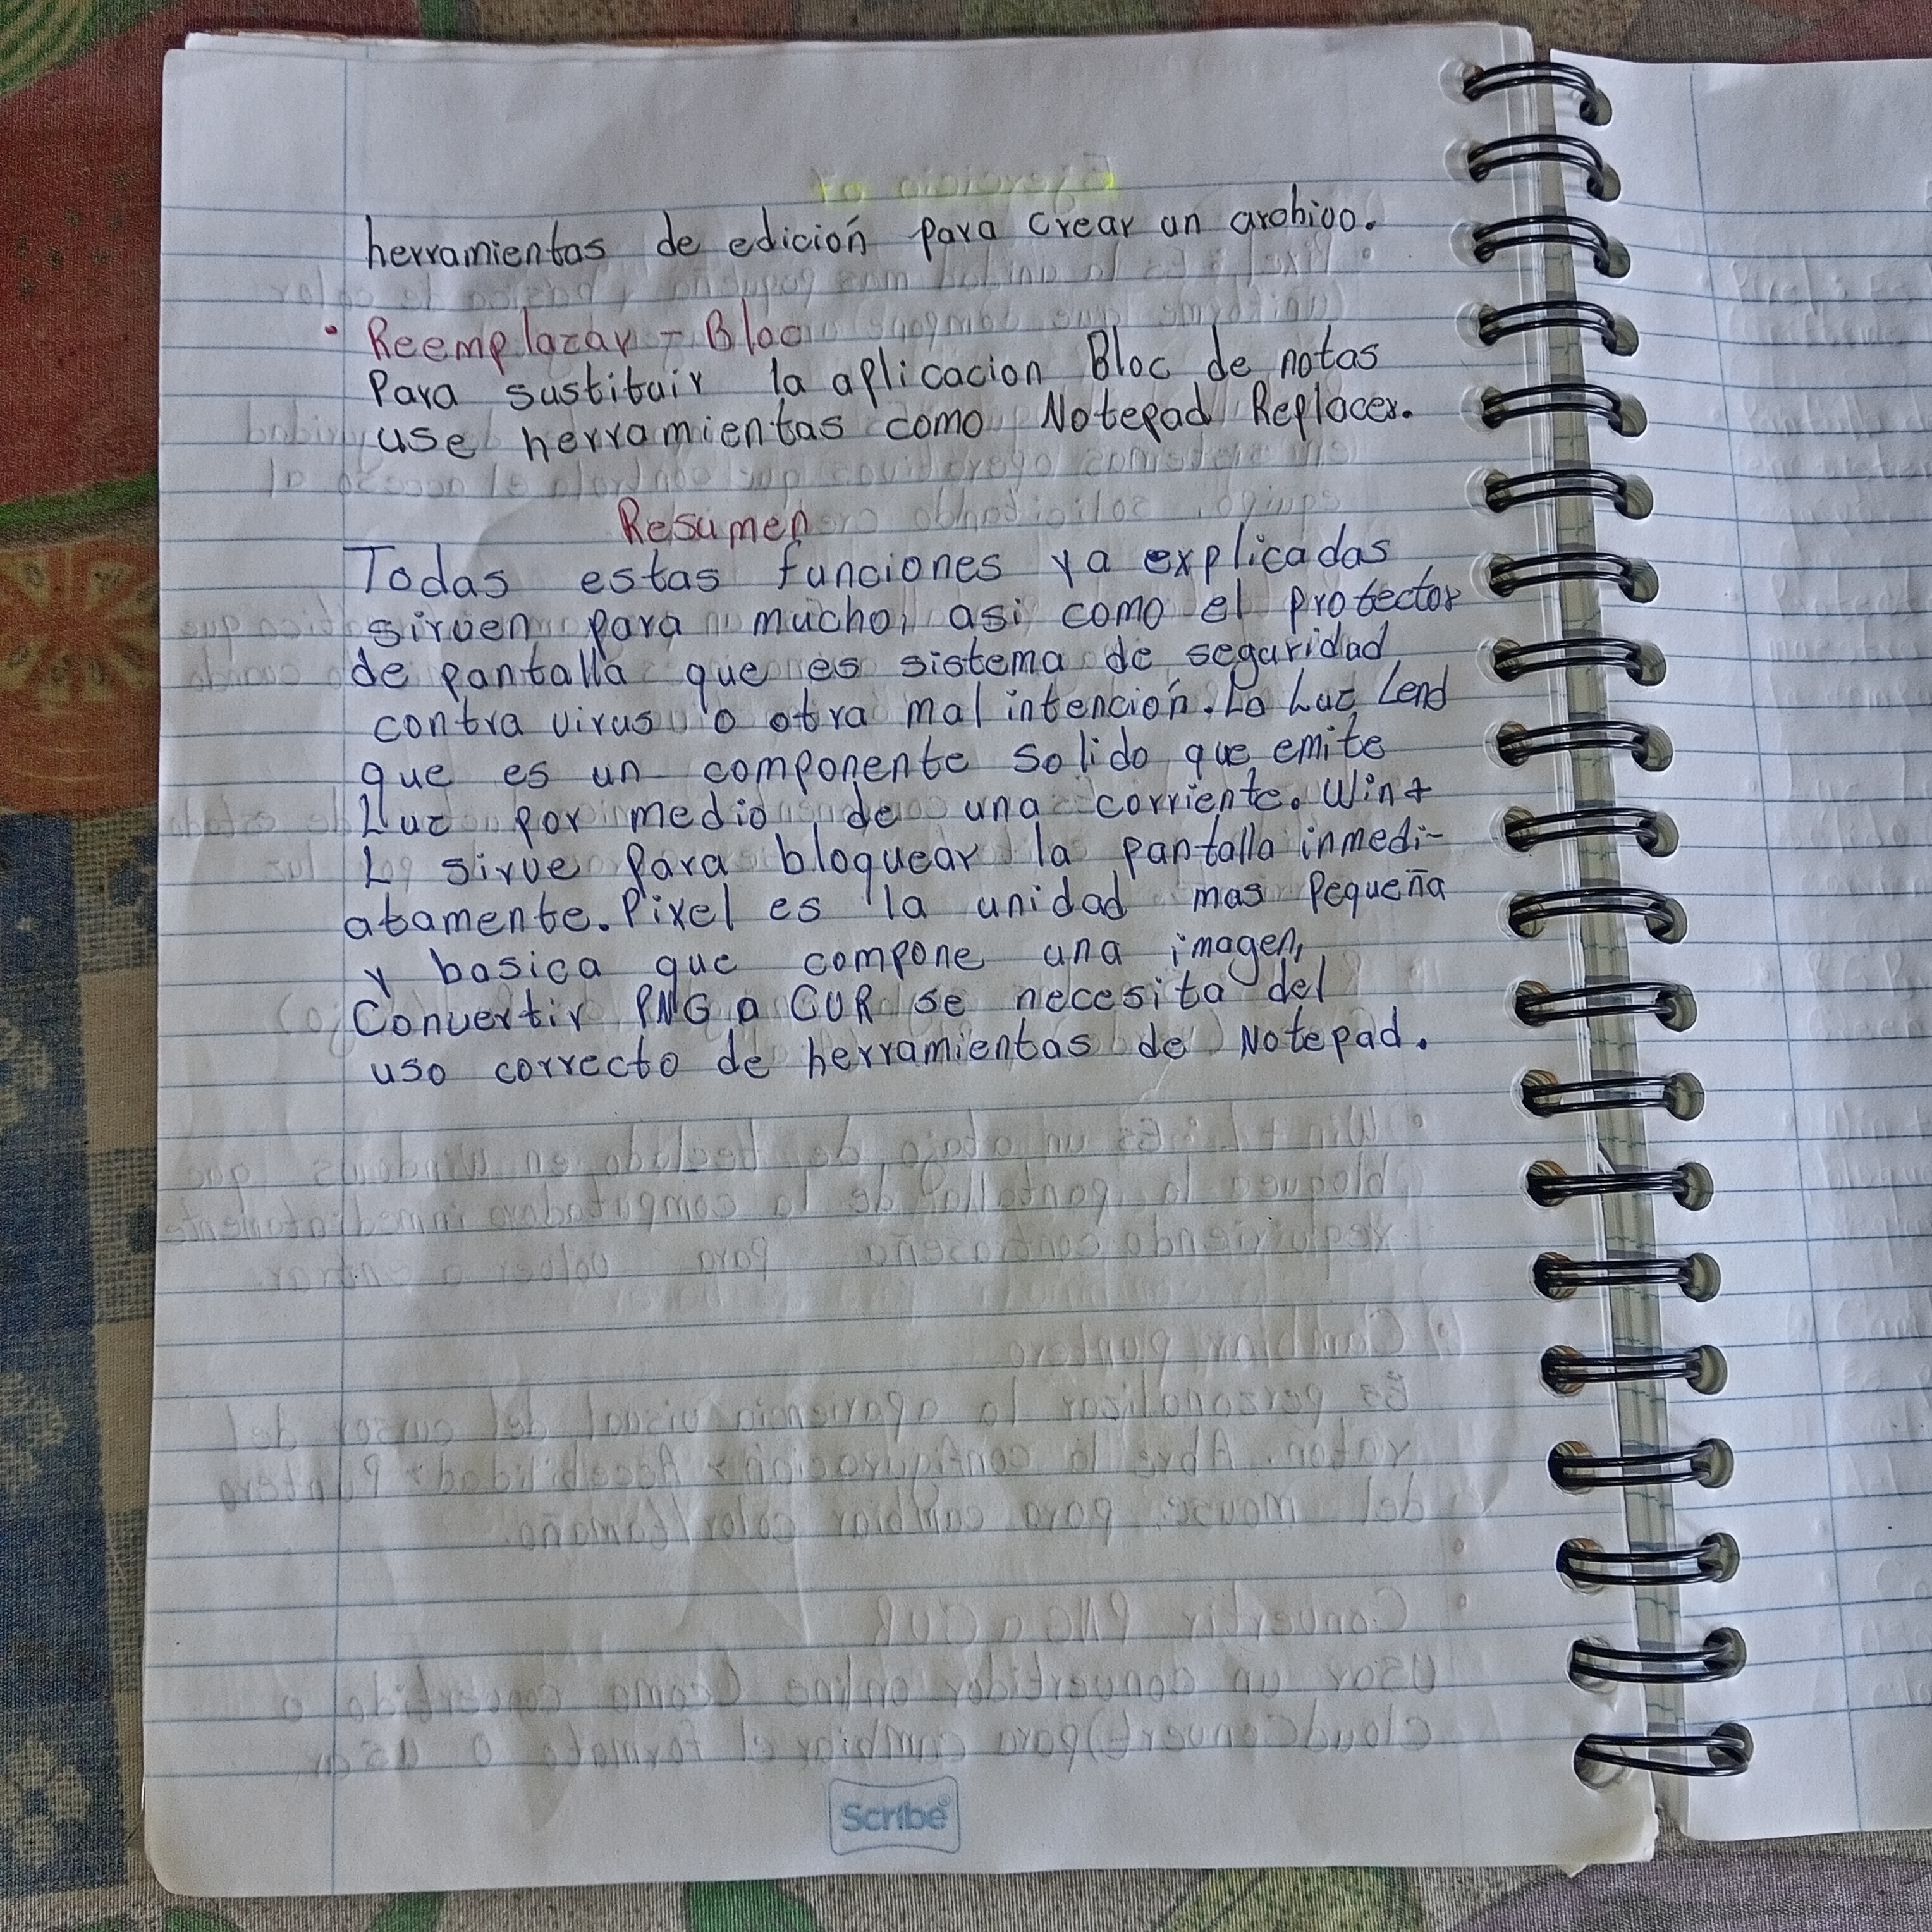 herramientas de edición para crear un archivo.
• Reemplazar - Bloc
Para sustituir la aplicacion Bloc de notas
use herramientas como Notepad Replacer.
Resumen
Todas estas funciones ya explicadas
sirven para mucho, asi como el protector
de pantalla que es sistema de seguridad
contra virus o otra mal intención. La Luz Lend
que es un componente solido que emite
Luz por medio de una corriente. Win +
L sirve para bloquear la pantalla inmedi-
atamente. Pixel es la unidad mas pequeña
y basica que compone una imagen,
Convertir PNG a CUR se necesita del
uso correcto de herramientas de Notepad.
Scribe